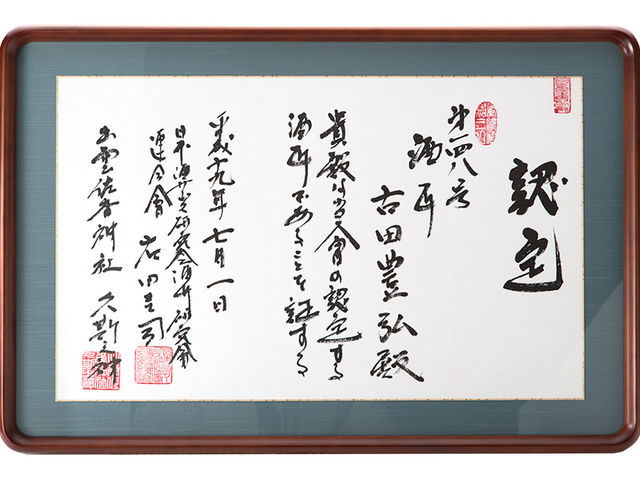 認定
第一四八号
酒匠
古田豊弘殿
貴殿は当会の認定する
酒匠であることを証する
平成十九年七月一日
日本酒サービス研究会酒匠研究会
連合会 右田圭司
出雲佐香神社 久斯之神